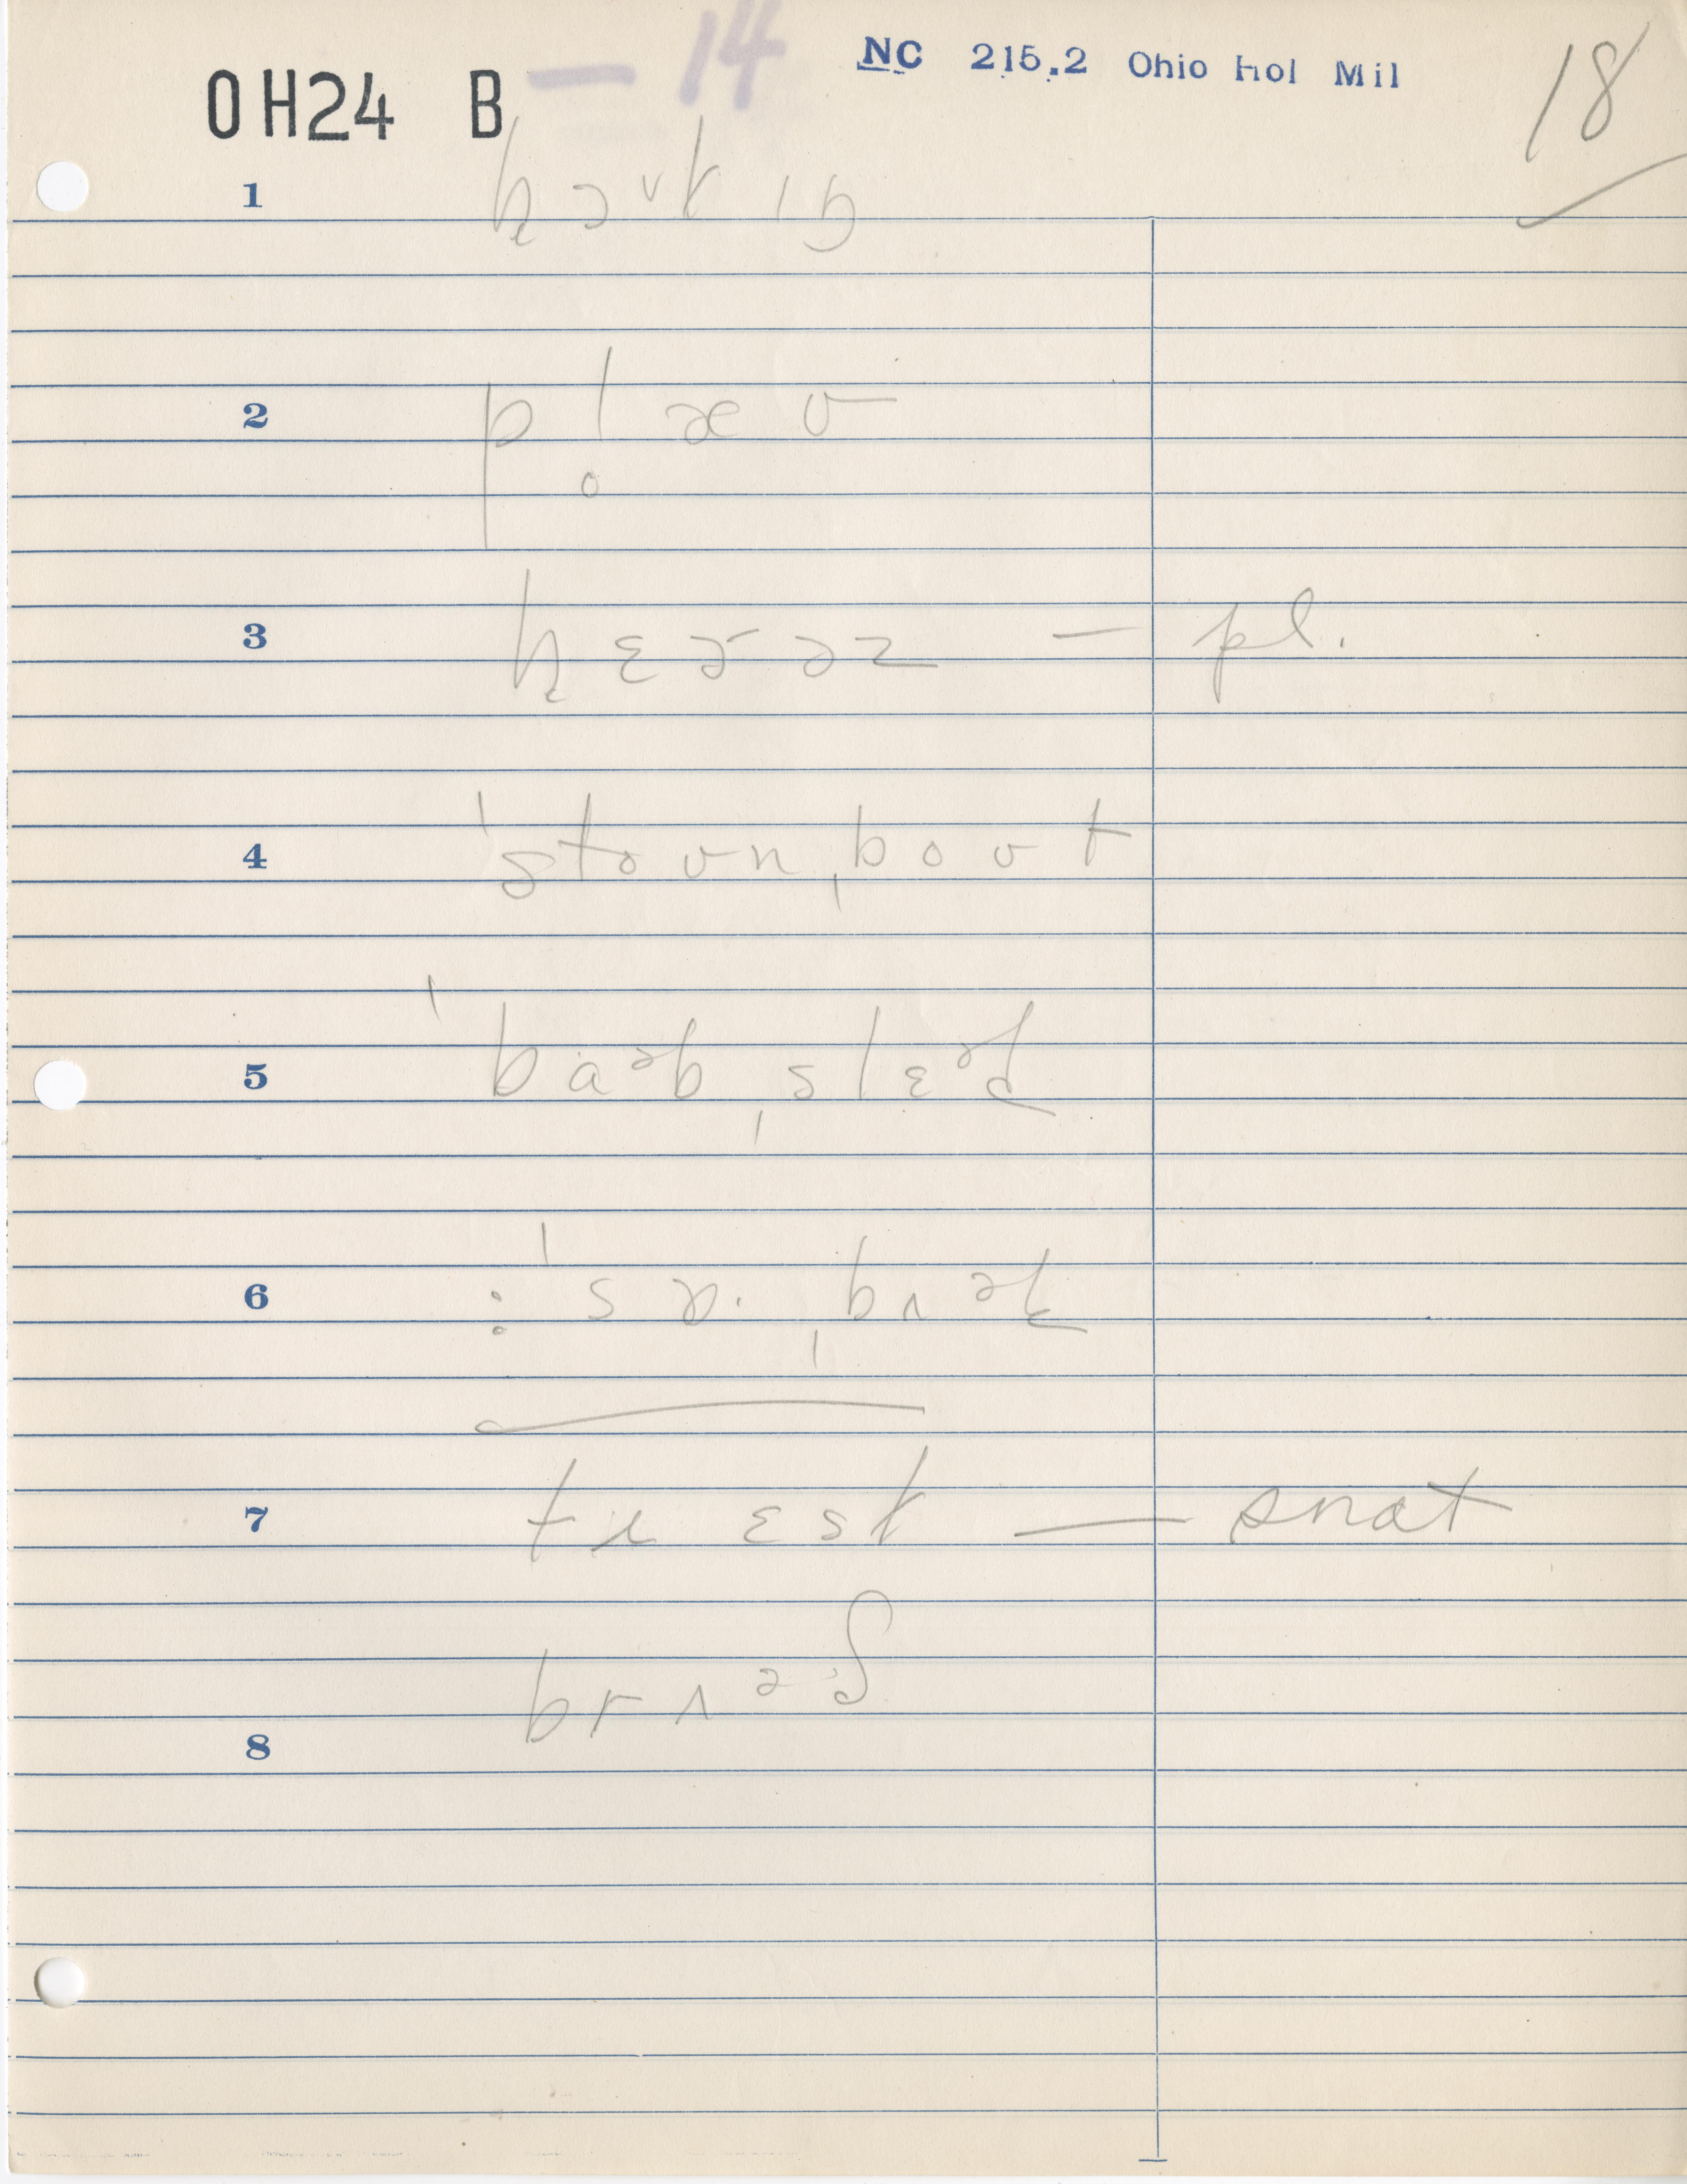 OH24 B — 14 NC 215.2 Ohio Hol Mil 18
1 hɔʊkɪŋ
2 pl̥æʊ
3 hɛɚəz — pl.
4 ˈstoʊnˌboʊt
5 ˈbaᵊbˌslɛᵊd
6 : ˈsɔ·ˌbʌᵊk
7 trɛsk — snat
brʌᵊʃ
8